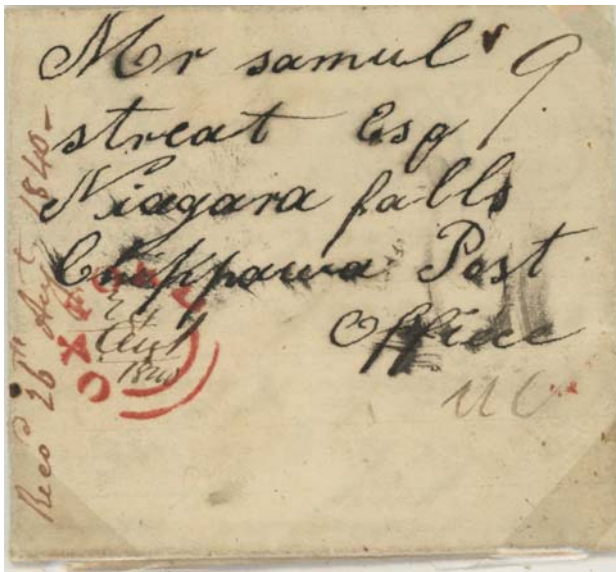 Mr samul 9
streat Esq
Niagara falls
Chippawa Post
Office
UC
OXFORD
24
Augt
1840
Recd 26th Augt 1840